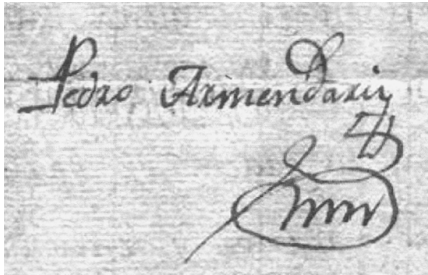 Pedro Armendariz